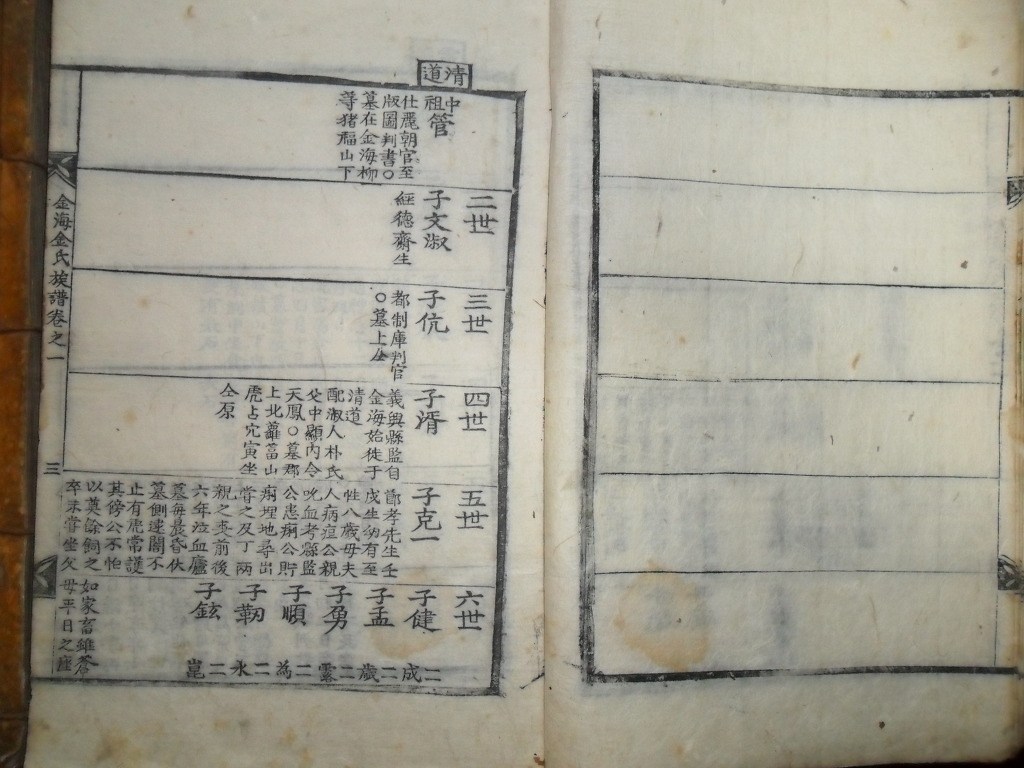 清道
中祖管
仕麗朝官至
版圖判書○
墓在金海柳
等猪福山下
二世
子文淑
經德齋生
三世
子伉
都制庫判官
○墓上仝
四世
子湑
義興縣監自
金海始徙于
清道
配淑人朴氏
父中顯內令
天鳳○墓郡
上北蘿葍山
虎占穴寅坐
仝原
五世
子克一
節孝先生壬
戌生幼有至
性八歲母夫
人病疽公親
吮血考縣監
公患痢公貯
痢埋地尋出
嘗之及丁兩
親之喪前後
六年泣血廬
墓每晨昏伏
墓側建閣不
止有虎常護
其傍公不怕
以奠餘飼之
卒未嘗坐父
六世
子健
二成
子孟
二歲
子勇
二靈
子順
二為
子韌
二永
子鉉
二崑
如家畜雖蒼
母平日之座
金海金氏族譜卷之一
三